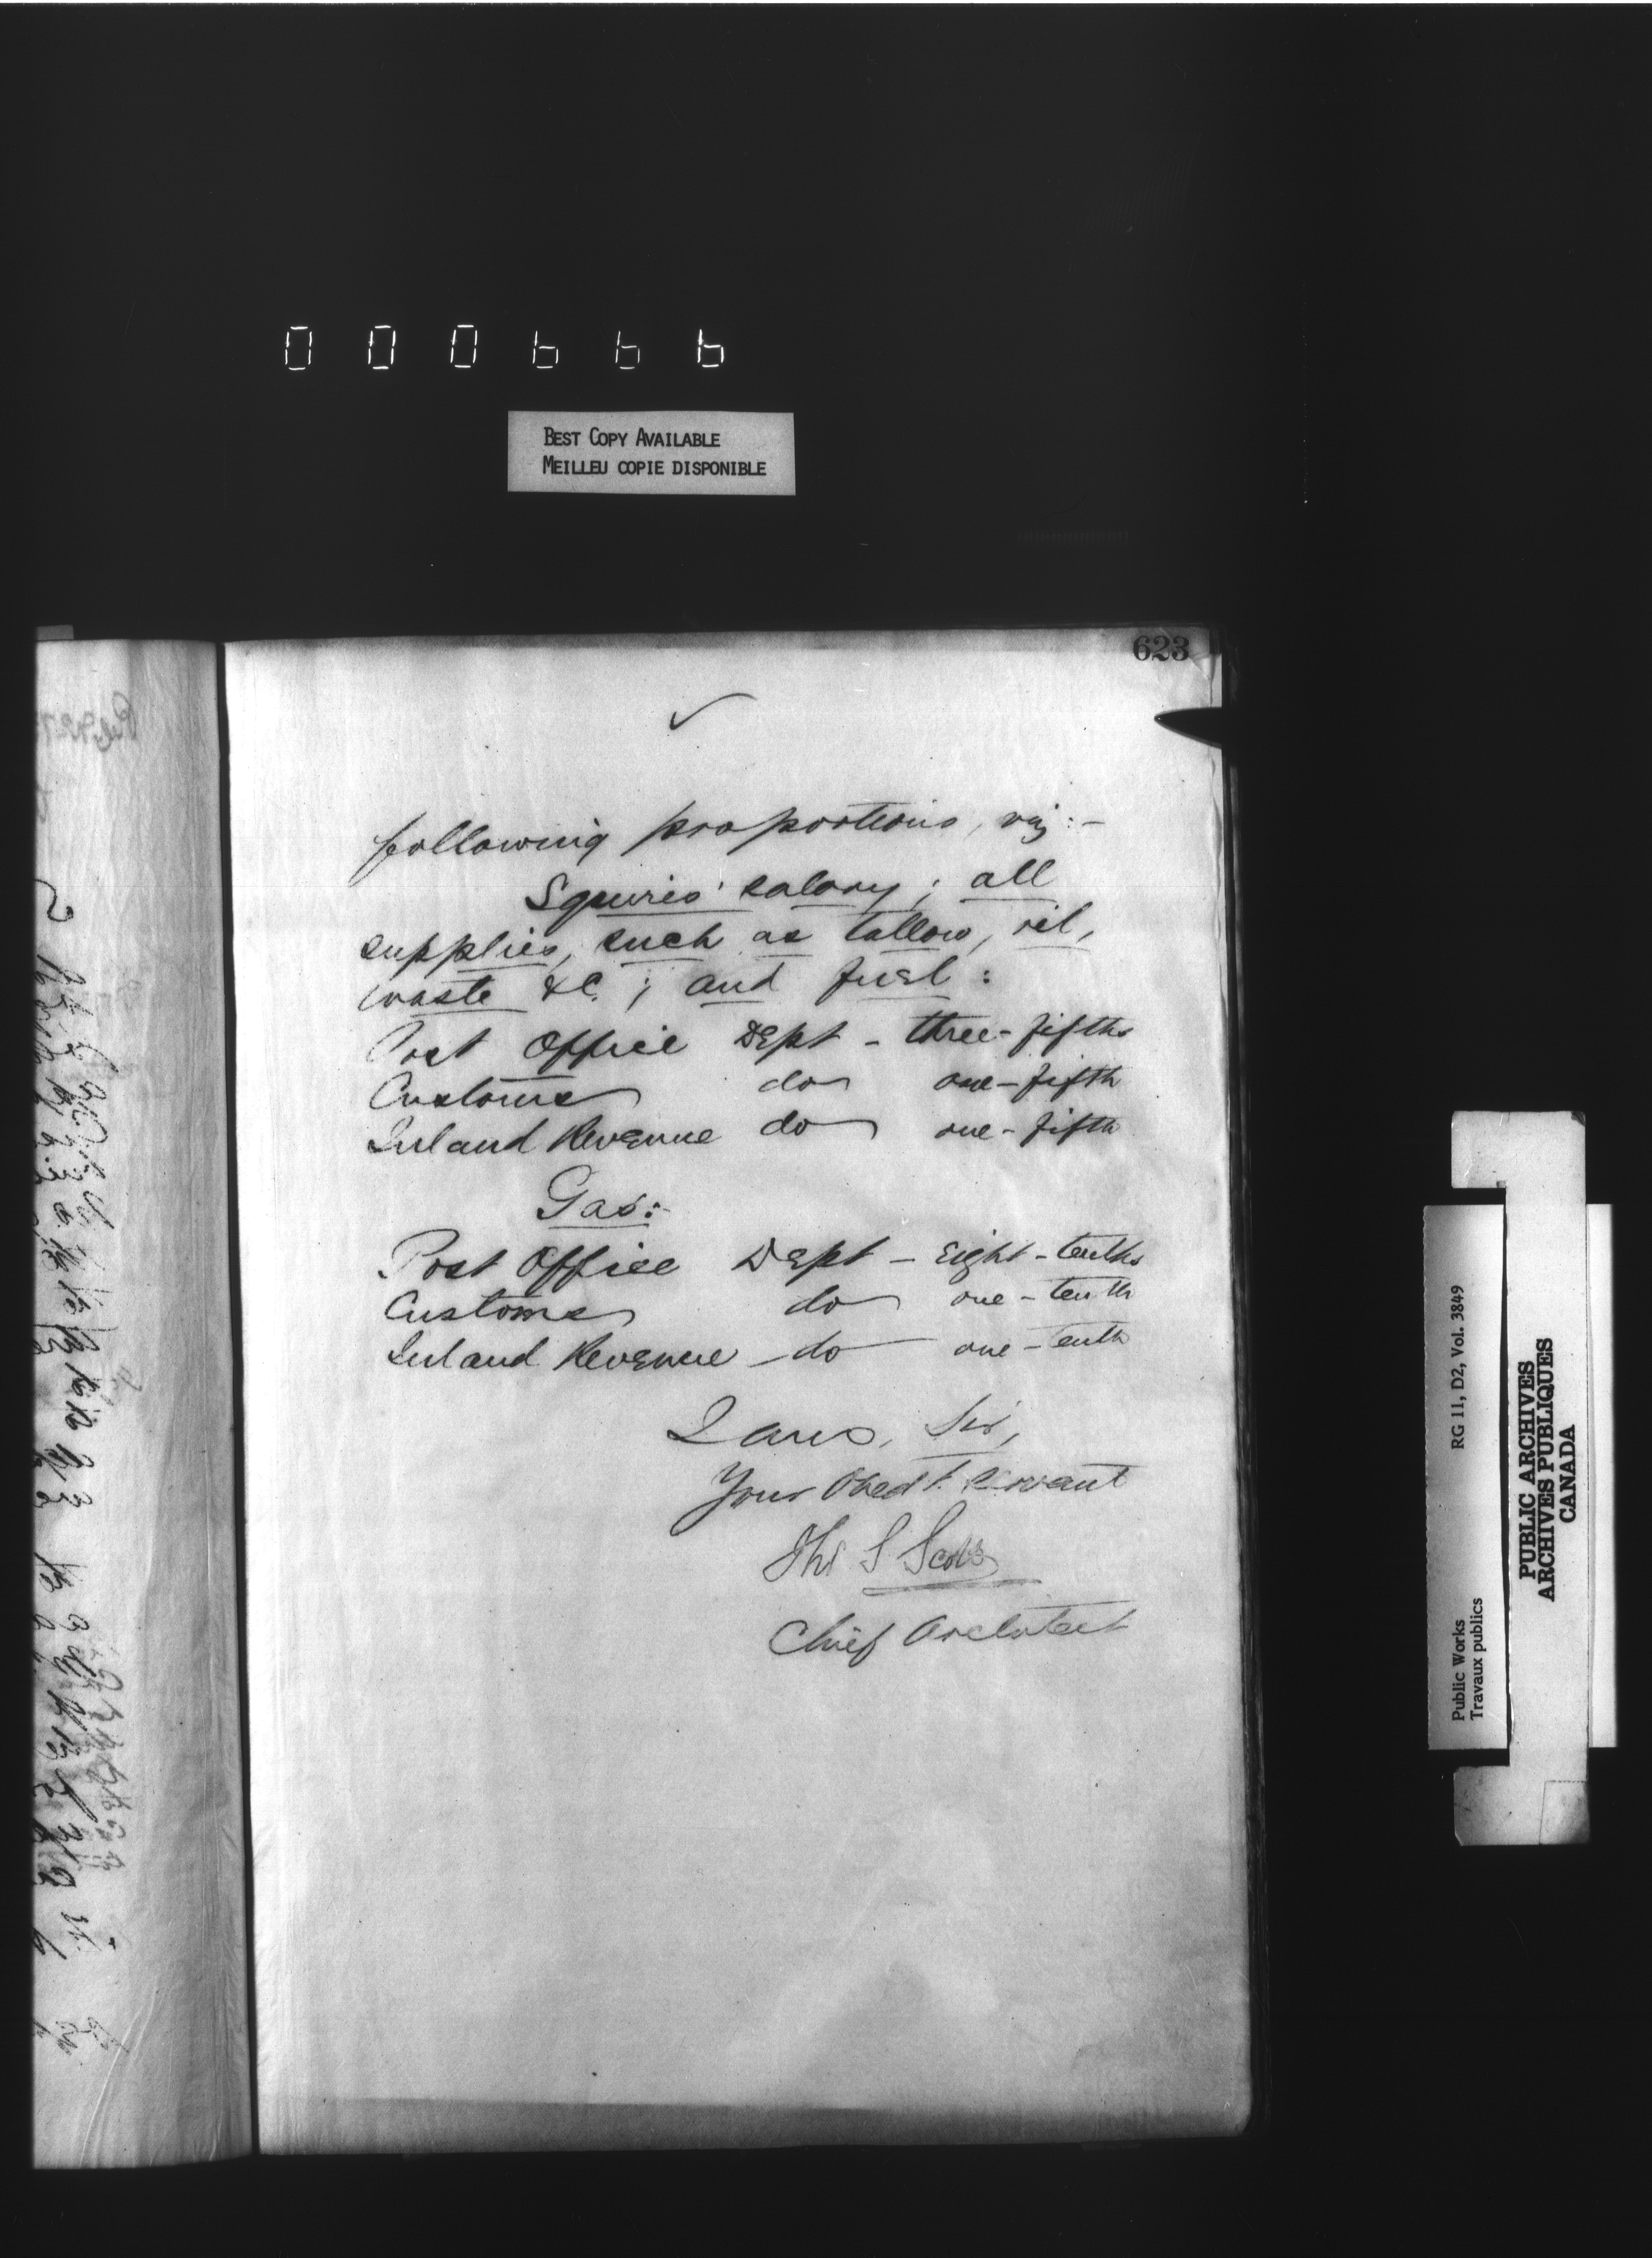 000666
BEST COPY AVAILABLE
MEILLEU COPIE DISPONIBLE
623
following proportions, viz:-
Squires' salary; all
supplies, such as tallow, oil,
waste &c.; and fuel:
Post Office Dept - three-fifths
Customs do one-fifth
Inland Revenue do one-fifth
Gas:-
Post Office Dept - Eight-tenths
Customs do one-tenth
Inland Revenue do one-tenth
I am, Sir,
Your Obedt. servant
Thos S Scott
Chief Architect
Public Works RG 11, D2, Vol. 3849
Travaux publics
PUBLIC ARCHIVES
ARCHIVES PUBLIQUES
CANADA